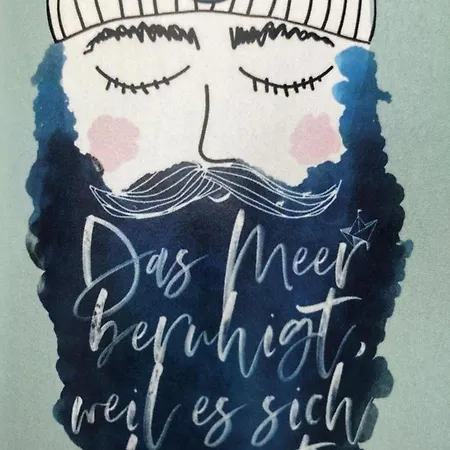 Das Meer
beruhigt,
weil es sich